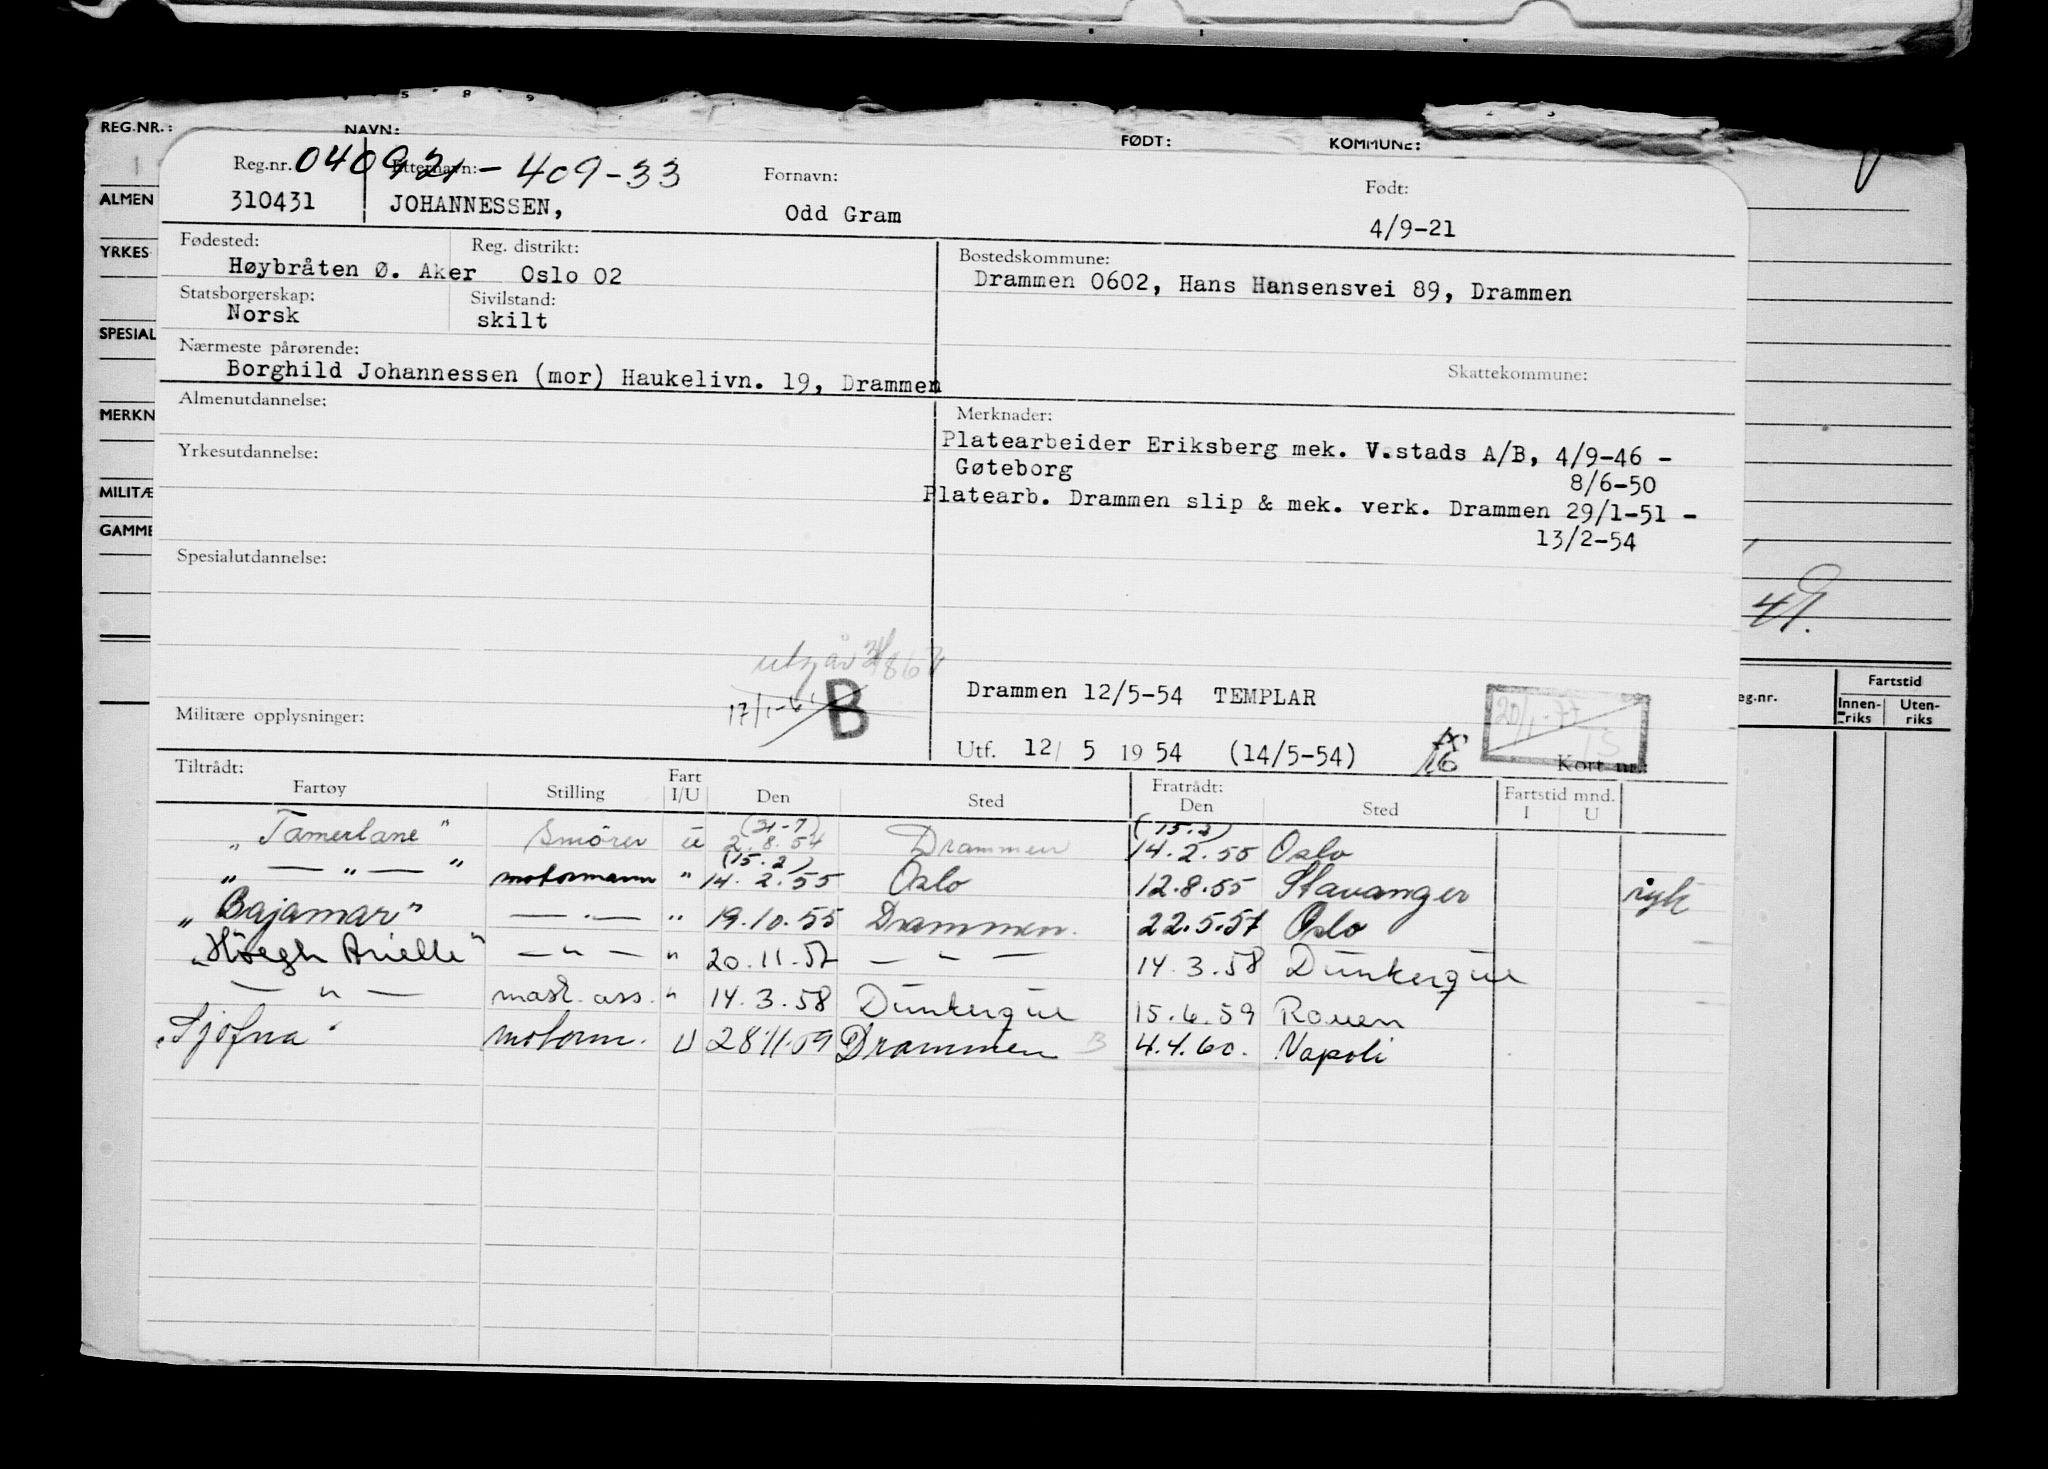 REG.NR.: NAVN: FØDT: KOMMUNE:
ALMEN
YRKES
SPESIAL
MERKN
MILITÆ
GAMME
Reg.nr. 040921-409-33 Etternavn: Fornavn: Født:
310431 JOHANNESSEN, Odd Gram 4/9-21
Fødested: Reg. distrikt: Bostedskommune:
Høybråten Ø. Aker Oslo 02 Drammen 0602, Hans Hansensvei 89, Drammen
Statsborgerskap: Sivilstand:
Norsk skilt
Nærmeste pårørende: Skattekommune:
Borghild Johannessen (mor) Haukelivn. 19, Drammen
Almenutdannelse: Merknader:
Platearbeider Eriksberg mek. V.stads A/B, 4/9-46 -
Yrkesutdannelse: Gøteborg 8/6-50
Platearb. Drammen slip & mek. verk. Drammen 29/1-51 -
13/2-54
Spesialutdannelse:
utgår
17/1-61 B Drammen 12/5-54 TEMPLAR 20/1-77
Militære opplysninger: Utf. 12/ 5 19 54 (14/5-54) 16 Kort nr.:
eg.nr. Fartstid
Innen-riks Uten-riks
Tiltrådt: Fratrådt:
Fartøy Stilling Fart I/U Den Sted Den Sted Fartstid mnd. I U
(31-7) (15.2)
„Tamerlane" Smörer u 2.8.54 Drammen 14.2.55 Oslo
(15.2)
„ — " — " motormann " 14.2.55 Oslo 12.8.55 Stavanger sykt
„Bajamar" — " — " 19.10.55 Drammen. 22.5.57 Oslo
„Höegh Arielle" — " — " 20.11.57 — " — 14.3.58 Dunkerque
— " — mask. ass. " 14.3.58 Dunkerque 15.6.59 Rouen
„Sjofna" motorm. U 28.11.59 Drammen B 4.4.60. Napoli